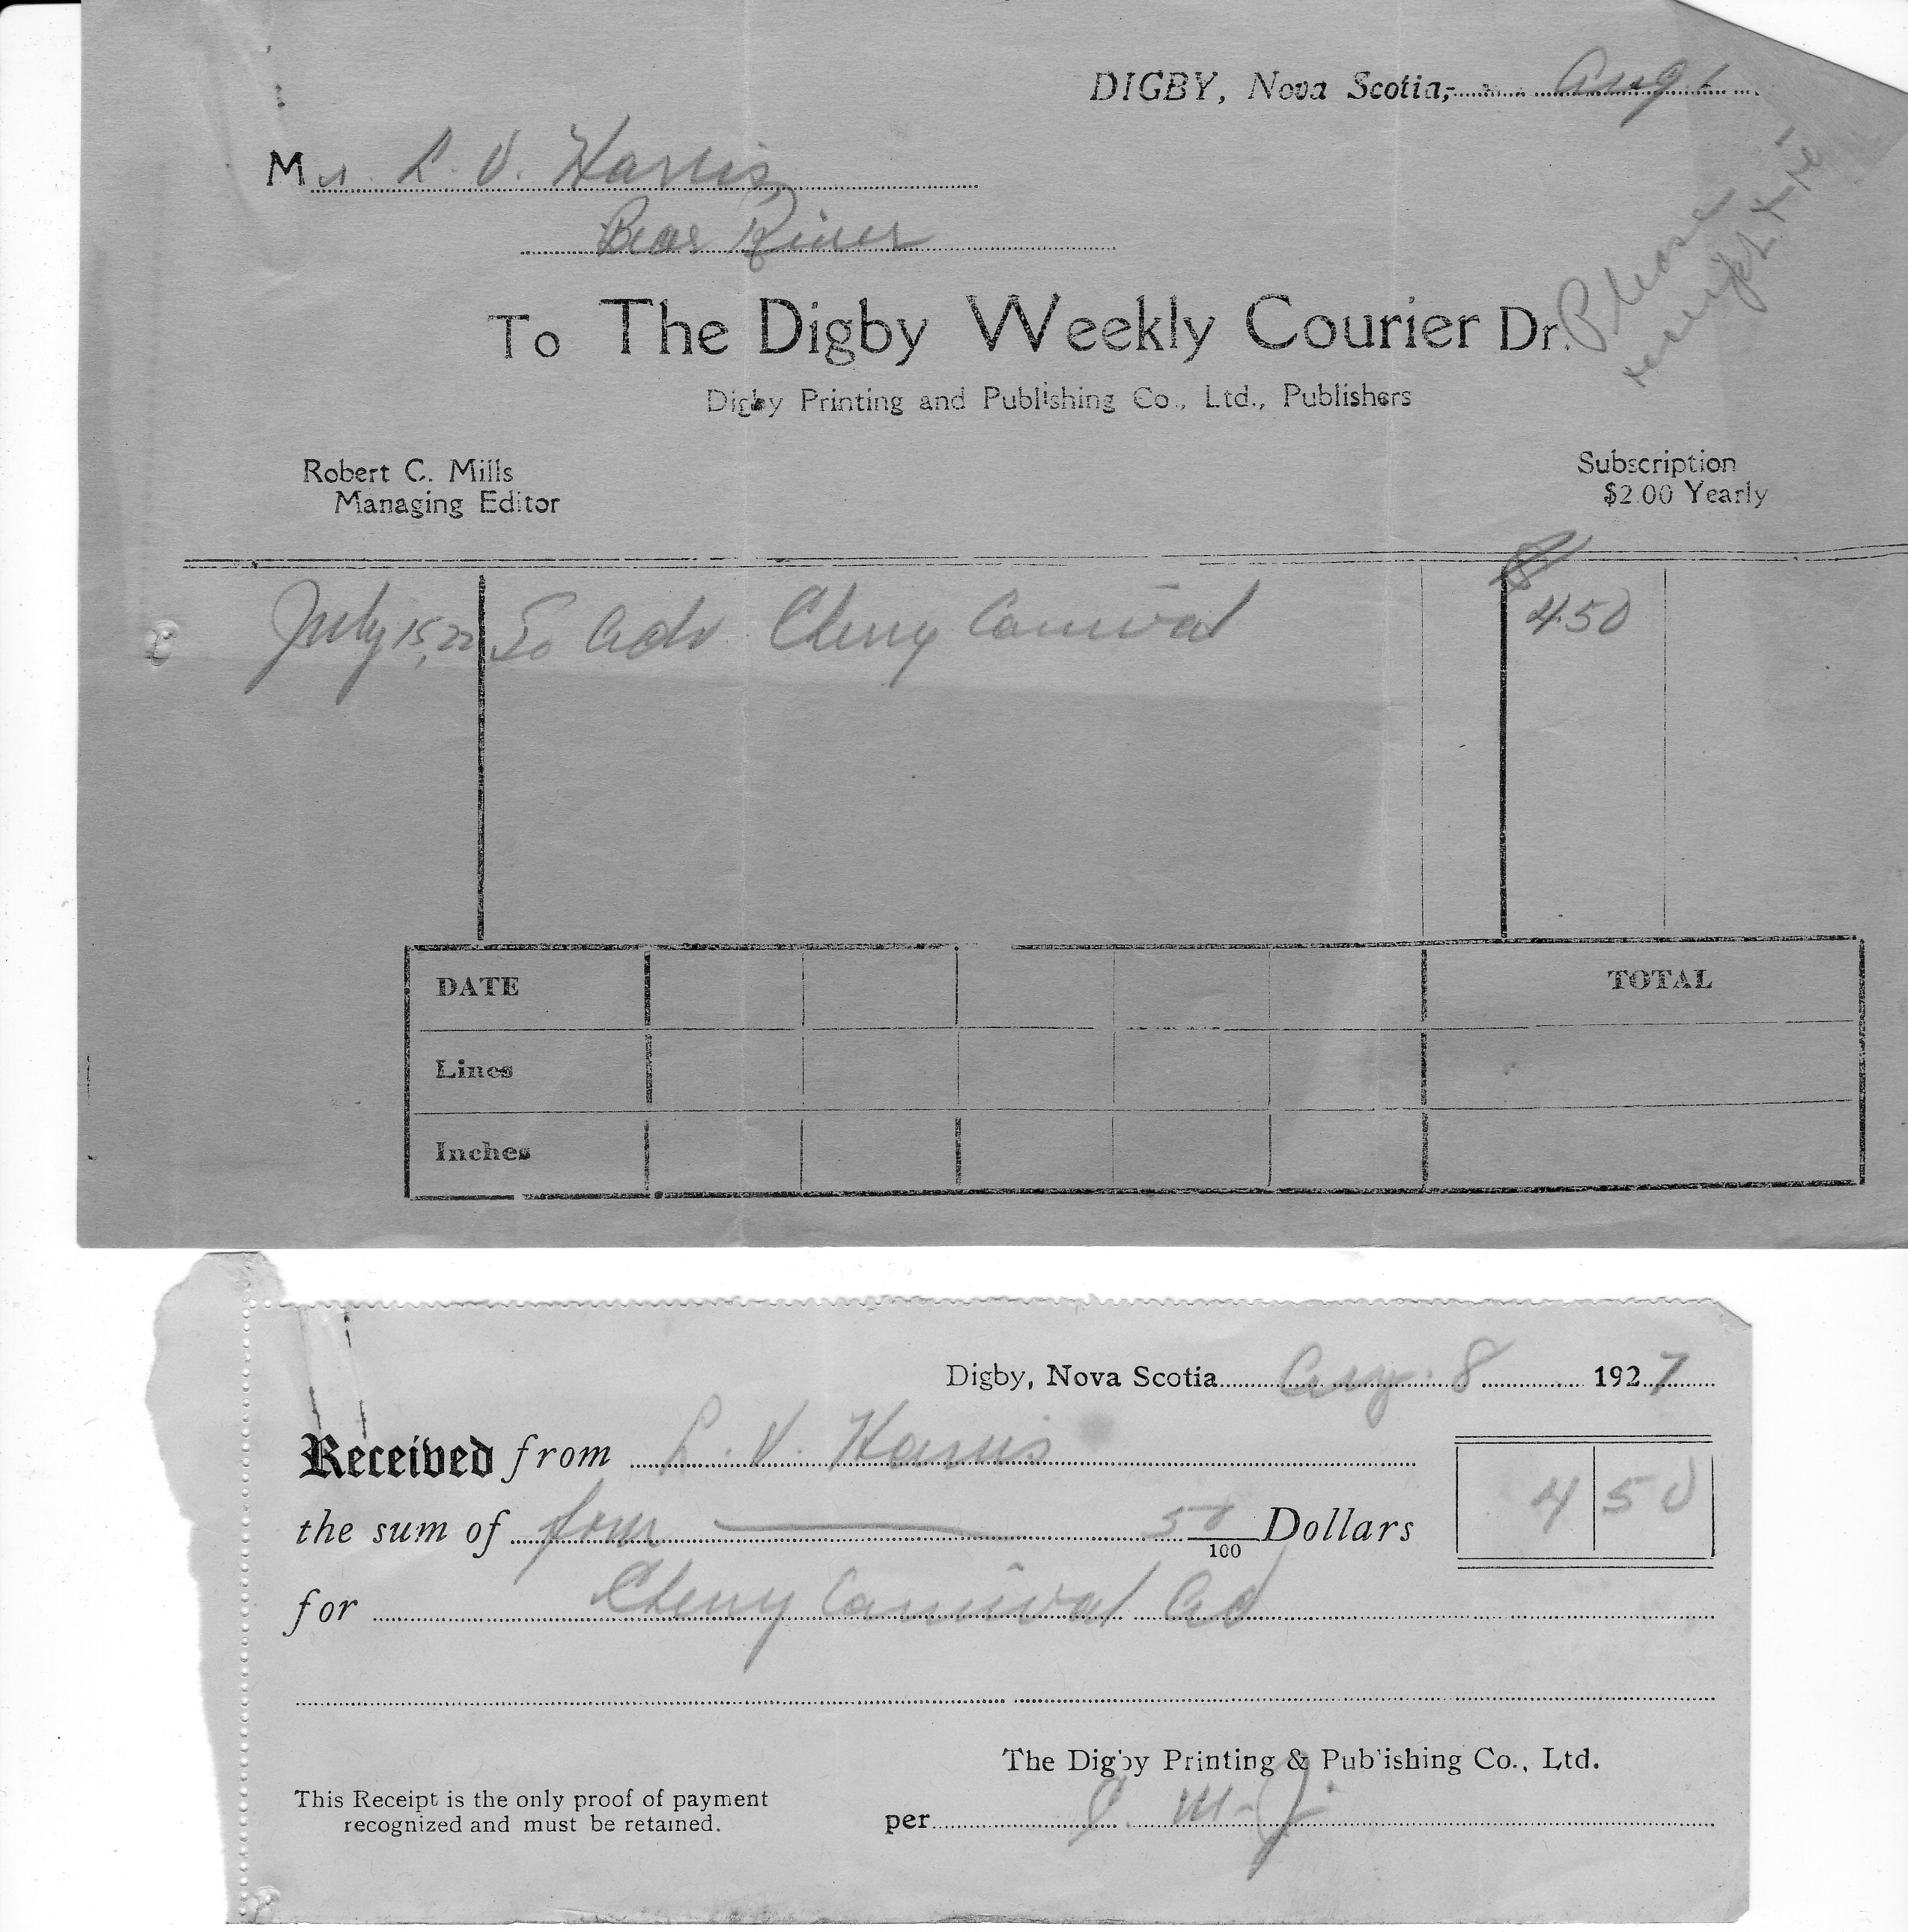 DIGBY, Nova Scotia, Aug 1
Mr. L. V. Harris,
Bear River
To The Digby Weekly Courier Dr.
Please
receipt
Digby Printing and Publishing Co., Ltd., Publishers
Robert C. Mills
Managing Editor
Subscription
$2.00 Yearly
July 15, 22 To Adv Cherry Carnival 4.50
DATE TOTAL
Lines
Inches
Digby, Nova Scotia Aug. 8 1927
Received from L. V. Harris
the sum of four 50/100 Dollars 4 50
for Cherry Carnival Ad
The Digby Printing & Publishing Co., Ltd.
This Receipt is the only proof of payment
recognized and must be retained.
per